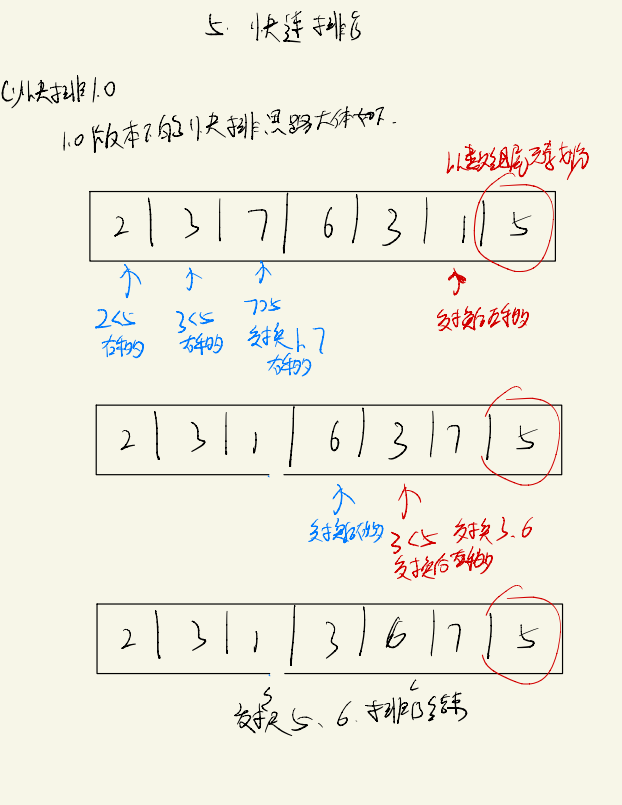 5. 快速排序
(1)快排1.0
1.0版本下的快排思路大体如下.
以数组尾元素划分
2 3 7 6 3 1 5
2<5 3<5 7>5
右移 右移 交换1、7 交换后左移
右移
2 3 1 6 3 7 5
交换后右移 3<5 交换3、6
交换后左移
2 3 1 3 6 7 5
交换5、6. 排序结束